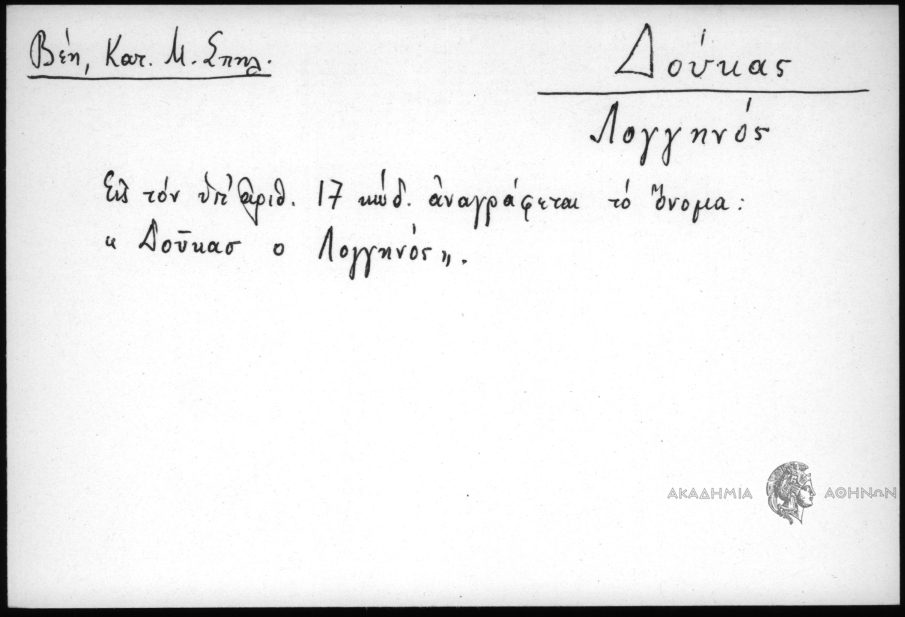 Βέη, Κατ. Μ. Σπηλ.
Δούκας
Λογγηνός
Εἰς τόν ὑπ' ἀριθ. 17 κώδ. ἀναγράφεται τό ὄνομα:
“ Δοῦκασ ο Λογγηνός„.
ΑΚΑΔΗΜΙΑ ΑΘΗΝΩΝ